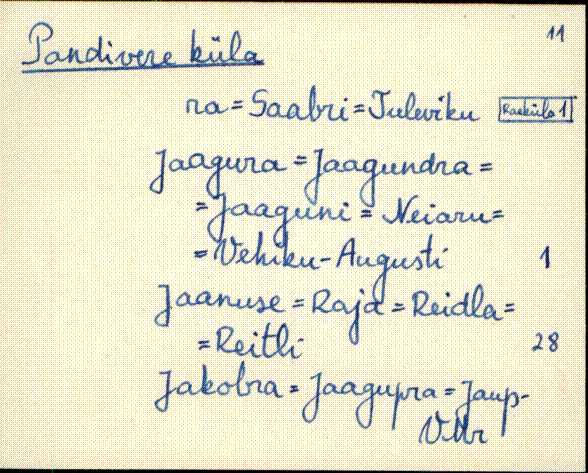 Pandivere küla 11
ra = Saabri = Tuleviku Raeküla 1
Jaagura = Jaagundra =
= Jaaguni = Neiaru =
= Vehiku-Augusti 1
Jaanuse = Raja = Reidla =
= Reitli 28
Jakobra = Jaagupra = Jaup-